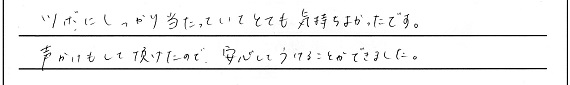 ツボにしっかり当たっていてとても気持ちよかったです。
声かけもして頂けたので、安心してうけることができました。